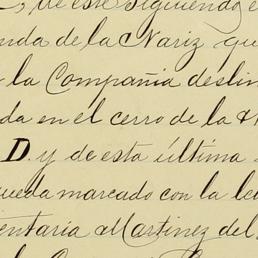 de este Siguiendo e
nda de la Nariz, qu
la Compañia deslin
da en el cerro de la
D. y de esta última
queda marcado con la le
entaria Martinez del